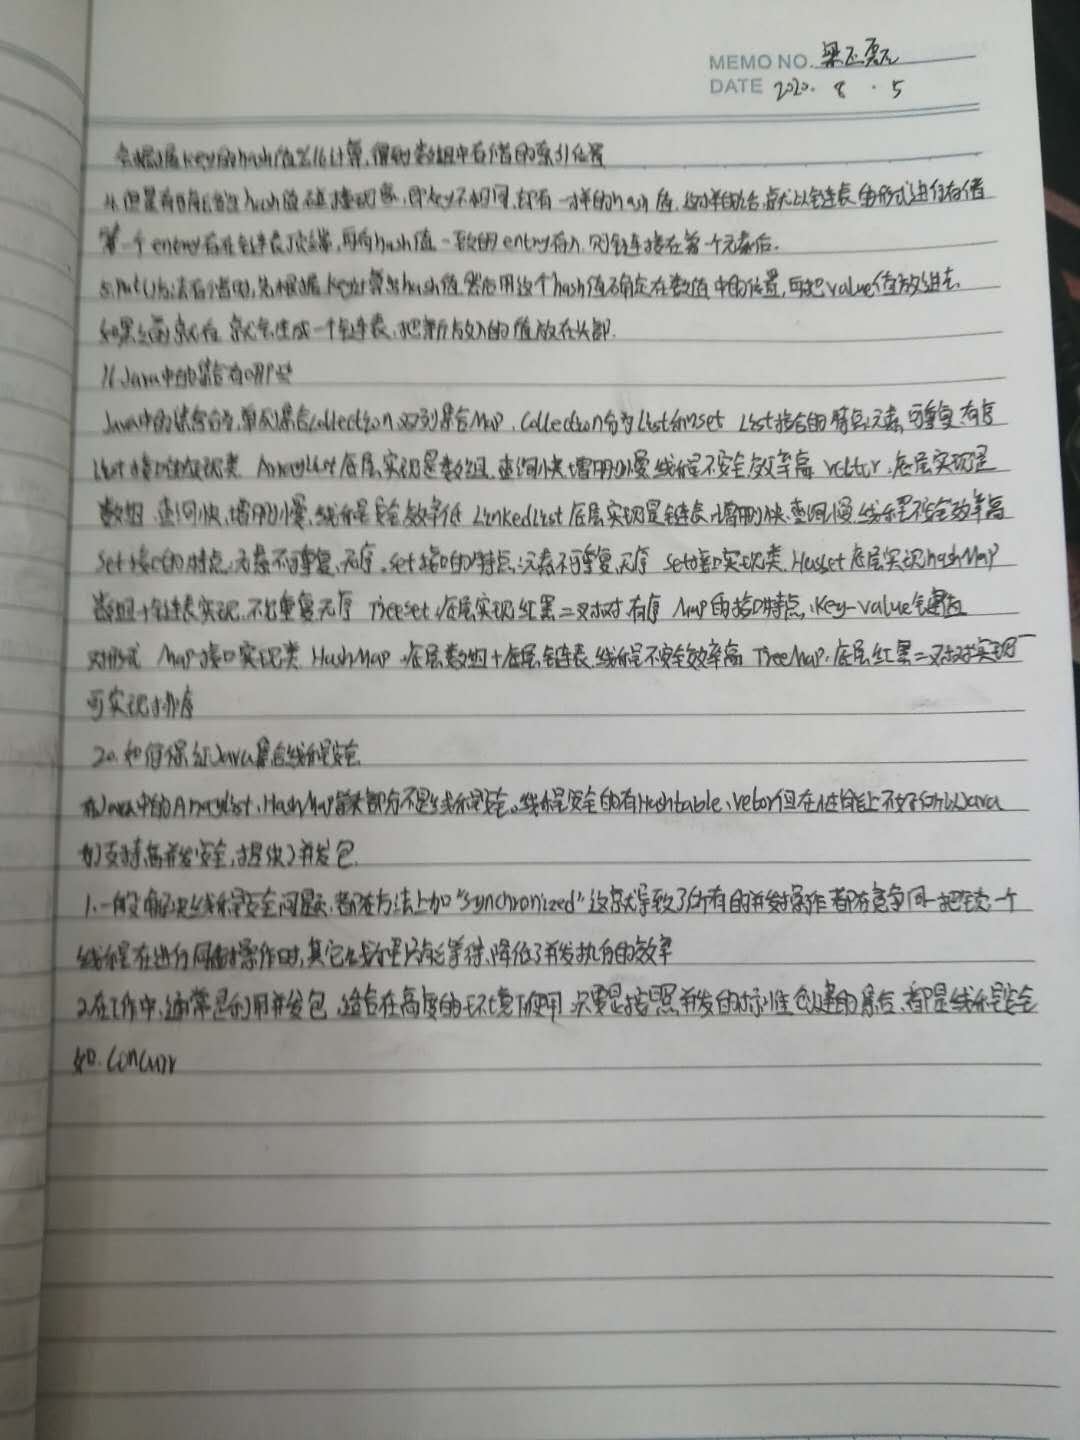 MEMO NO. 梁正
DATE 2020. 8 . 5
会根据Key的hash值%16计算,得到数组中存储的索引位置
4.但是有时候会出hash值碰撞现象,即key不相同,却有一样的hash值,这样的话,就以链表的形式进行存储
第一个entry存在链表顶端,再有hash值一致的entry存入,则链接在第一个元素后.
5.Put()方法存储时,先根据Key计算出hash值,然后用这个hash值确定在数值中的位置,再把value值放进去.
如果里面就有 就会生成一个链表,把新放入的值放在头部.
Java中的集合有哪些
Java中的集合分为,单列集合Collection,双列集合Map,Collection分为List和set List接合的特点:元素可重复,有序
List接口的实现类 ArrayList 底层实现是数组,查询快,增删慢,线程不安全,效率高 vector,底层实现是
数组,查询快,增删慢,线程安全,效率低 LinkedList 底层实现是链表,增删快,查询慢,线程不安全,效率高
Set接口的特点:元素不可重复,无序.set接口的特点:元素不可重复,无序 set接口实现类,Hasset底层实现hashMap
数组+链表实现,不可重复无序 Treeset,底层实现红黑二叉树有序 Map的接口特点,Key-value键值
对形式 Map接口实现类 HashMap,底层数组+底层链表,线程不安全效率高 TreeMap,底层红黑二叉树实现
可实现排序
20.如何保证Java集合线程安全
在Java中的Arraylist,HashMap等大部分不是线程安全。线程安全的有Hashtable、vetor但在性能上不好所以Java
为支持高并发安全,提供了并发包.
1.一般解决线程安全问题,都在方法上加"synchronized"这就导致了所有的并发操作都在竞争同一把锁,一个
线程在进行同时操作时,其它线程只能等待,降低了并发执行的效率
2.在工作中,通常是利用并发包,适合在高度的环境下使用 只要是按照并发的标准创建的集合,都是线程安全
如.Concurr